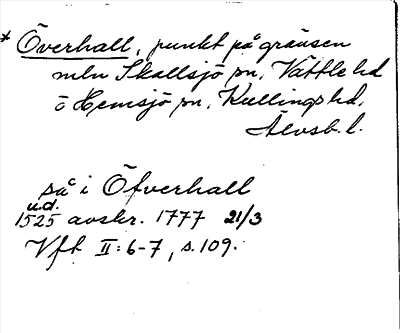 * Överhall, punkt på gränsen
mln Skallsjö sn, Vättle hd
o Hemsjö sn, Kullings hd,
Älvsb. l.
så i Öfverhall
u.d.
1525 avskr. 1777 21/3
Vft II: 6-7, s. 109.